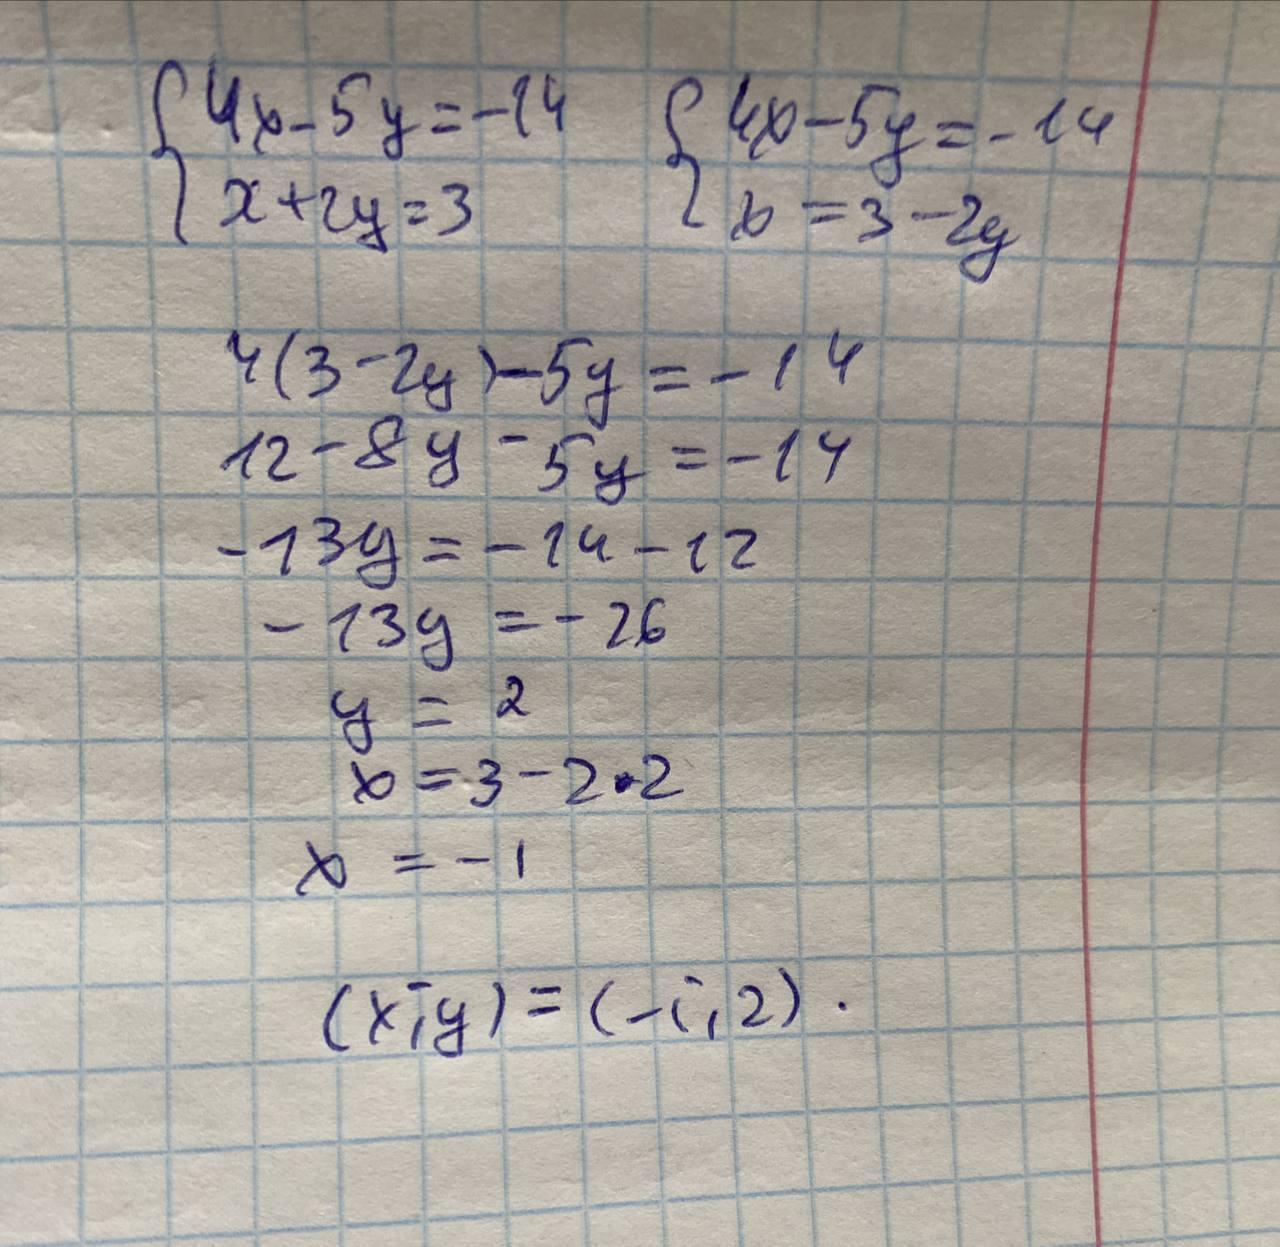 4x-5y=-14
x+2y=3
4x-5y=-14
x=3-2y
4(3-2y)-5y=-14
12-8y-5y=-14
-13y=-14-12
-13y=-26
y=2
x=3-2•2
x=-1
(x;y)=(-1;2).